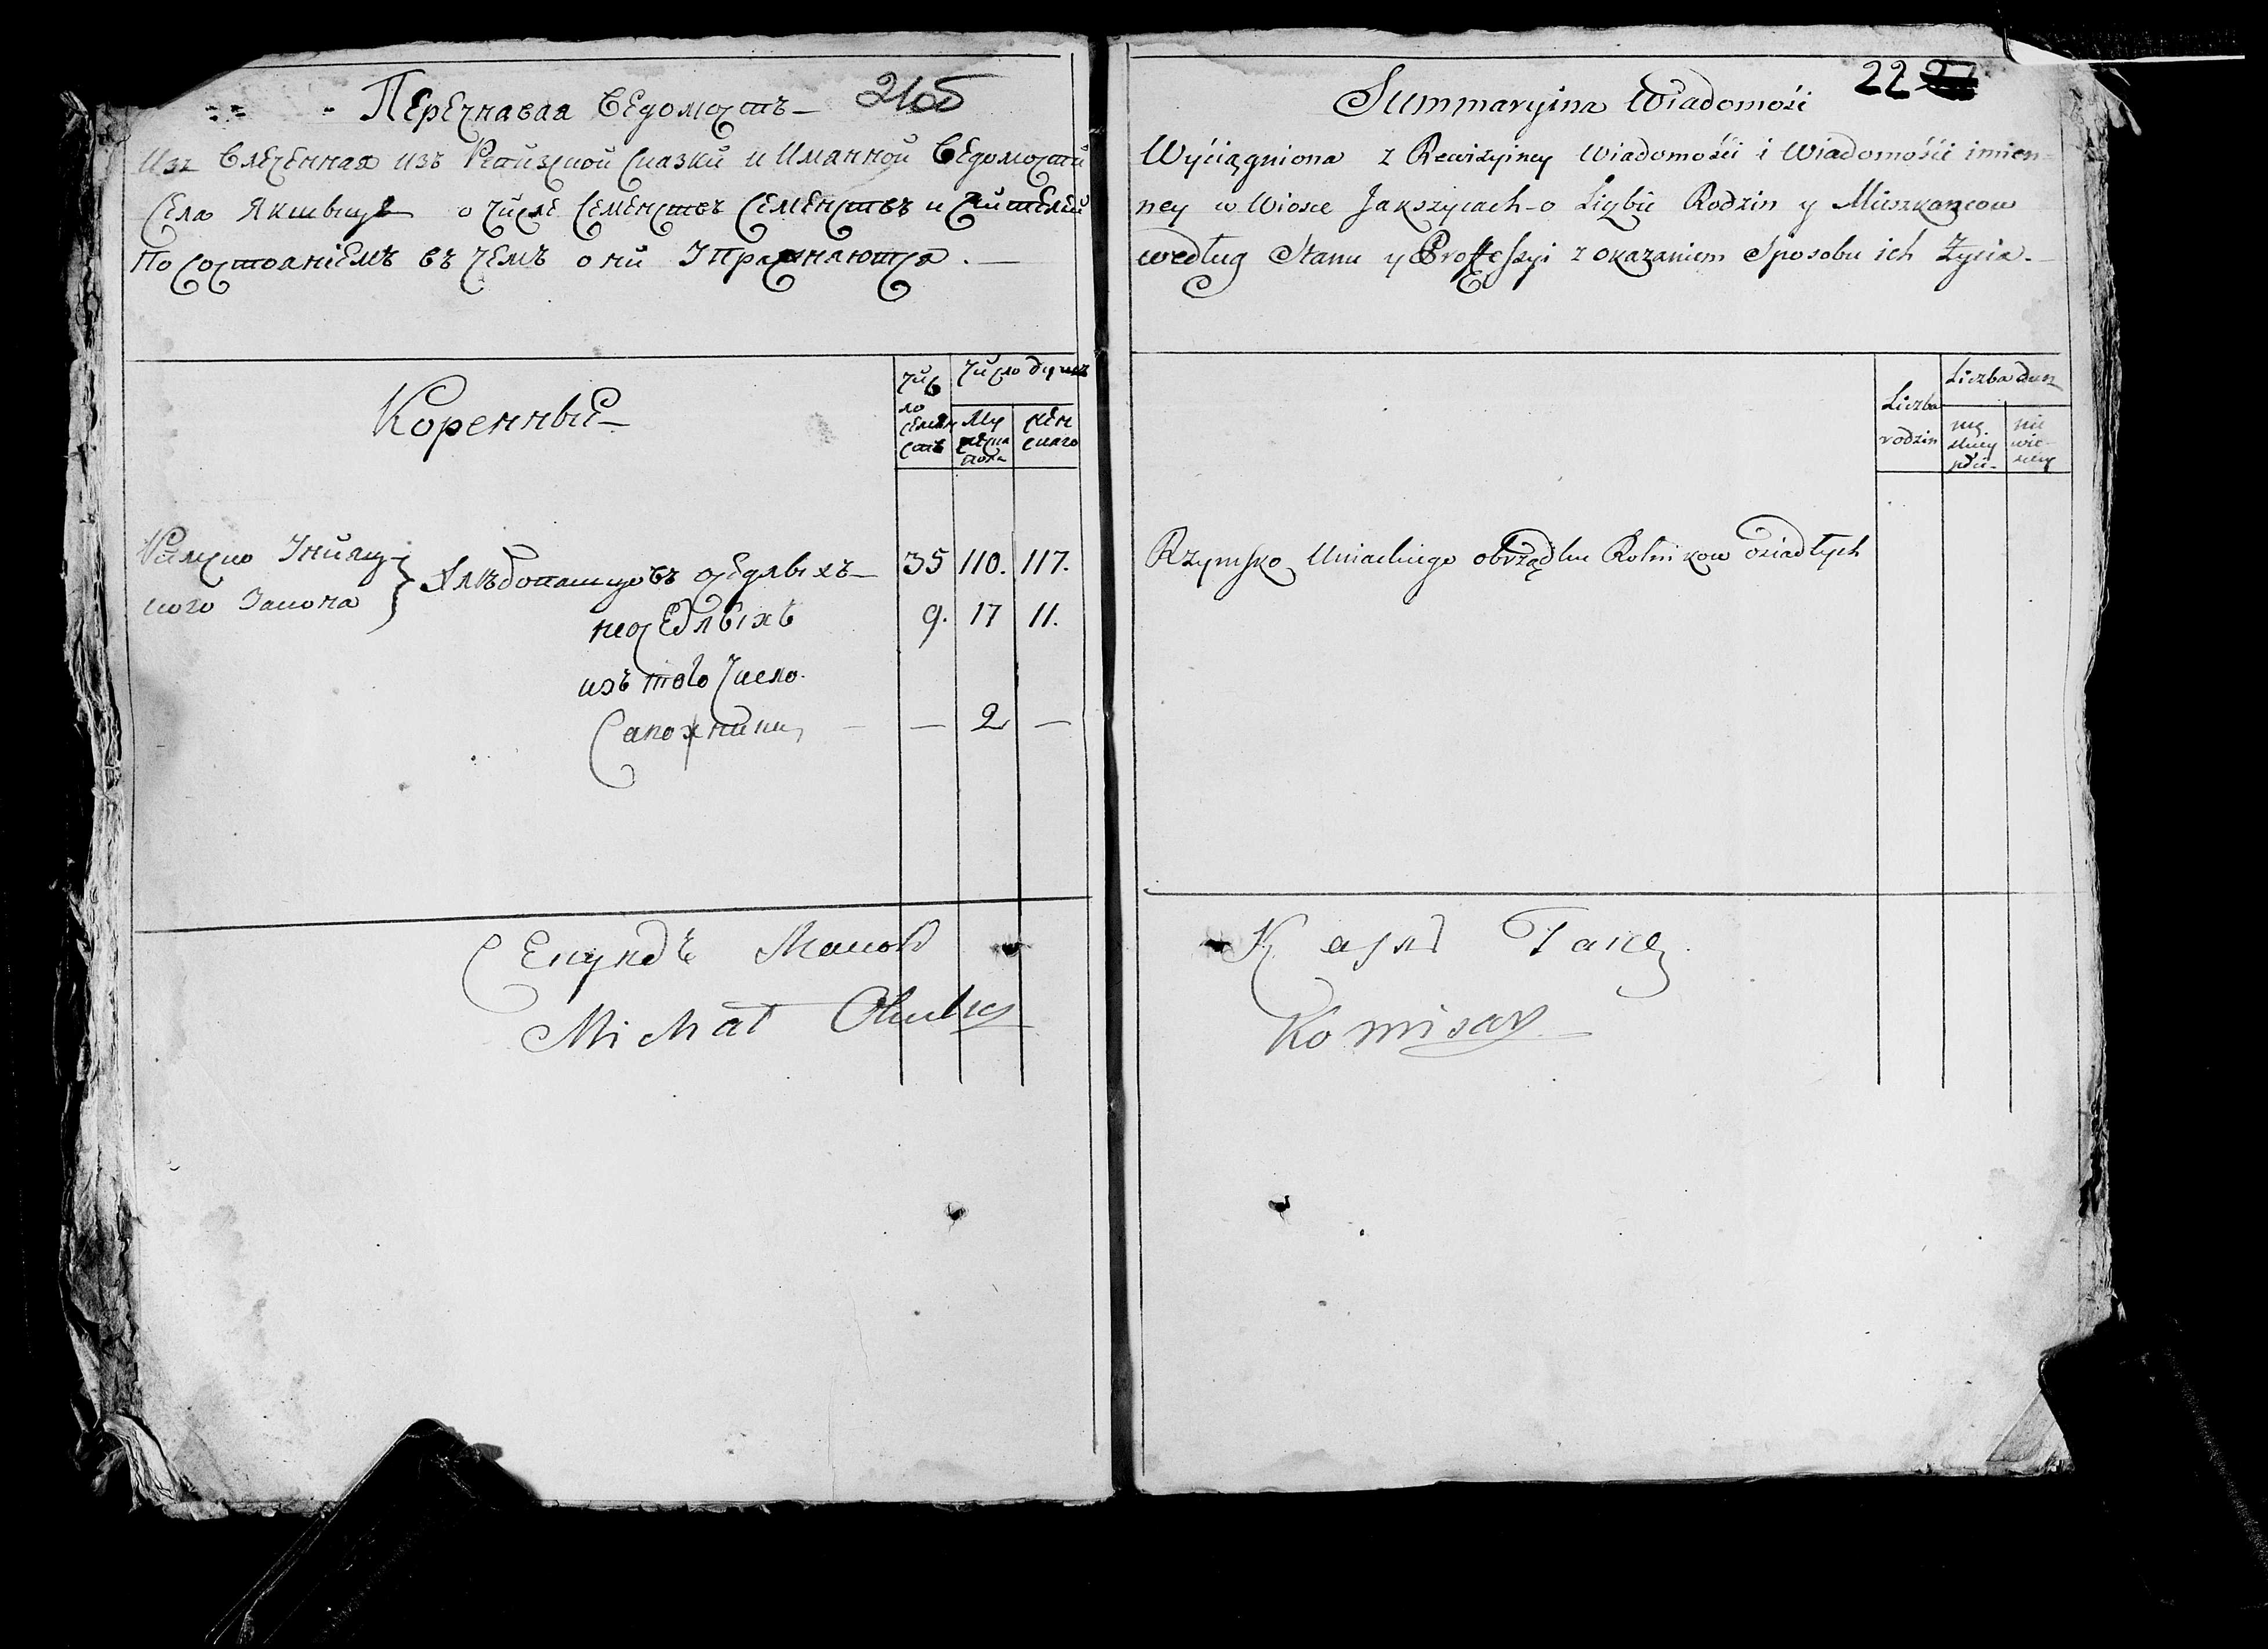 Перечнавая Ведомость
21об
Извлеченная изъ Ревизской Сказки и Иманной Ведомости
Села Якшицъ о числе Семенствъ Семенствъ и Жителей
По состоянiемъ въ чемъ они Упражнаются. —
Коренные
Чис
ло
семен
ствъ
Число душъ
Му
жеска
пола
жен
скаго
Римско Унияц
кого Закона
Хлѣбопашцовъ оседлыхъ 35 110. 117.
неоседлыхъ 9. 17 11.
изъ того числа.
Сапожники — — 2 —
Секундъ Маиоръ
Michał
22
Summaryina Wiadomość
Wyciągniona z Rewizyiney Wiadomości i Wiadomości imien-
ney w Wiosce Jakszycach o Liczbie Rodzin y Mieszkancow
według Stanu y Proffeszyi z okazaniem Sposobu ich Życia. —
Liczba
rodzin
Liczba dusz
mę
skiey
płci
nie
wie-
sciey
Rzymsko Uniackiego obrządku Rolnikow osiadłych
Komisarz